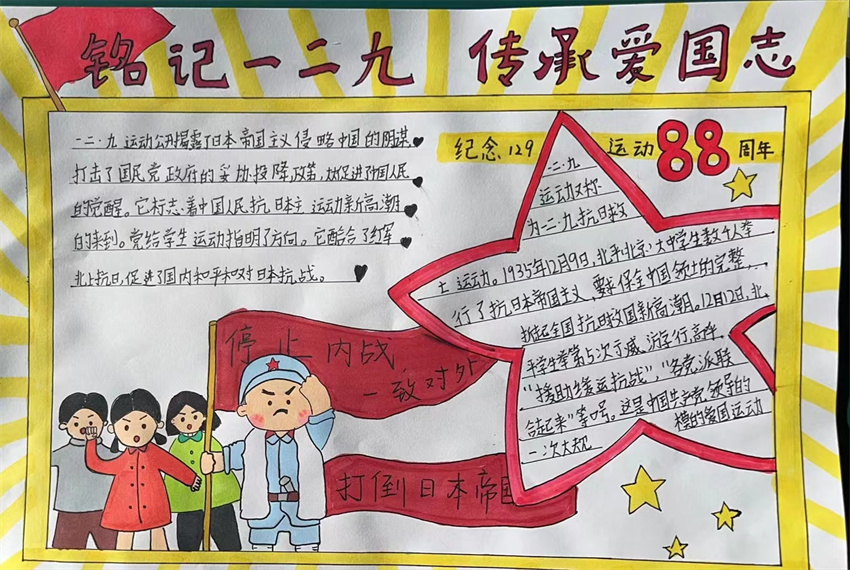 铭记一二九 传承爱国志
一二·九运动公开揭露了日本帝国主义侵略中国的阴谋
打击了国民党政府的妥协投降政策,大大促进了中国人民
的觉醒。它标志着中国人民抗日本主运动新高潮
的来到。党给学生运动指明了方向。它配合了红军
北上抗日,促进了国内和平和对日本抗战。
纪念129 运动88周年
一二·九
运动又称
为一二·九抗日救
亡运动。1935年12月9日,北平(北京)大中学生数千人举
行了抗日本帝国主义,要求保全中国领土的完整,
掀起全国抗日救国新高潮。12月12日,北
平学生举第5次示威游行,高呼
“援助绥远抗战”,“各党派联
合起来”等口号。这是中国共产党领导的
一次大规模的爱国运动
停止内战
一致对外
打倒日本帝国